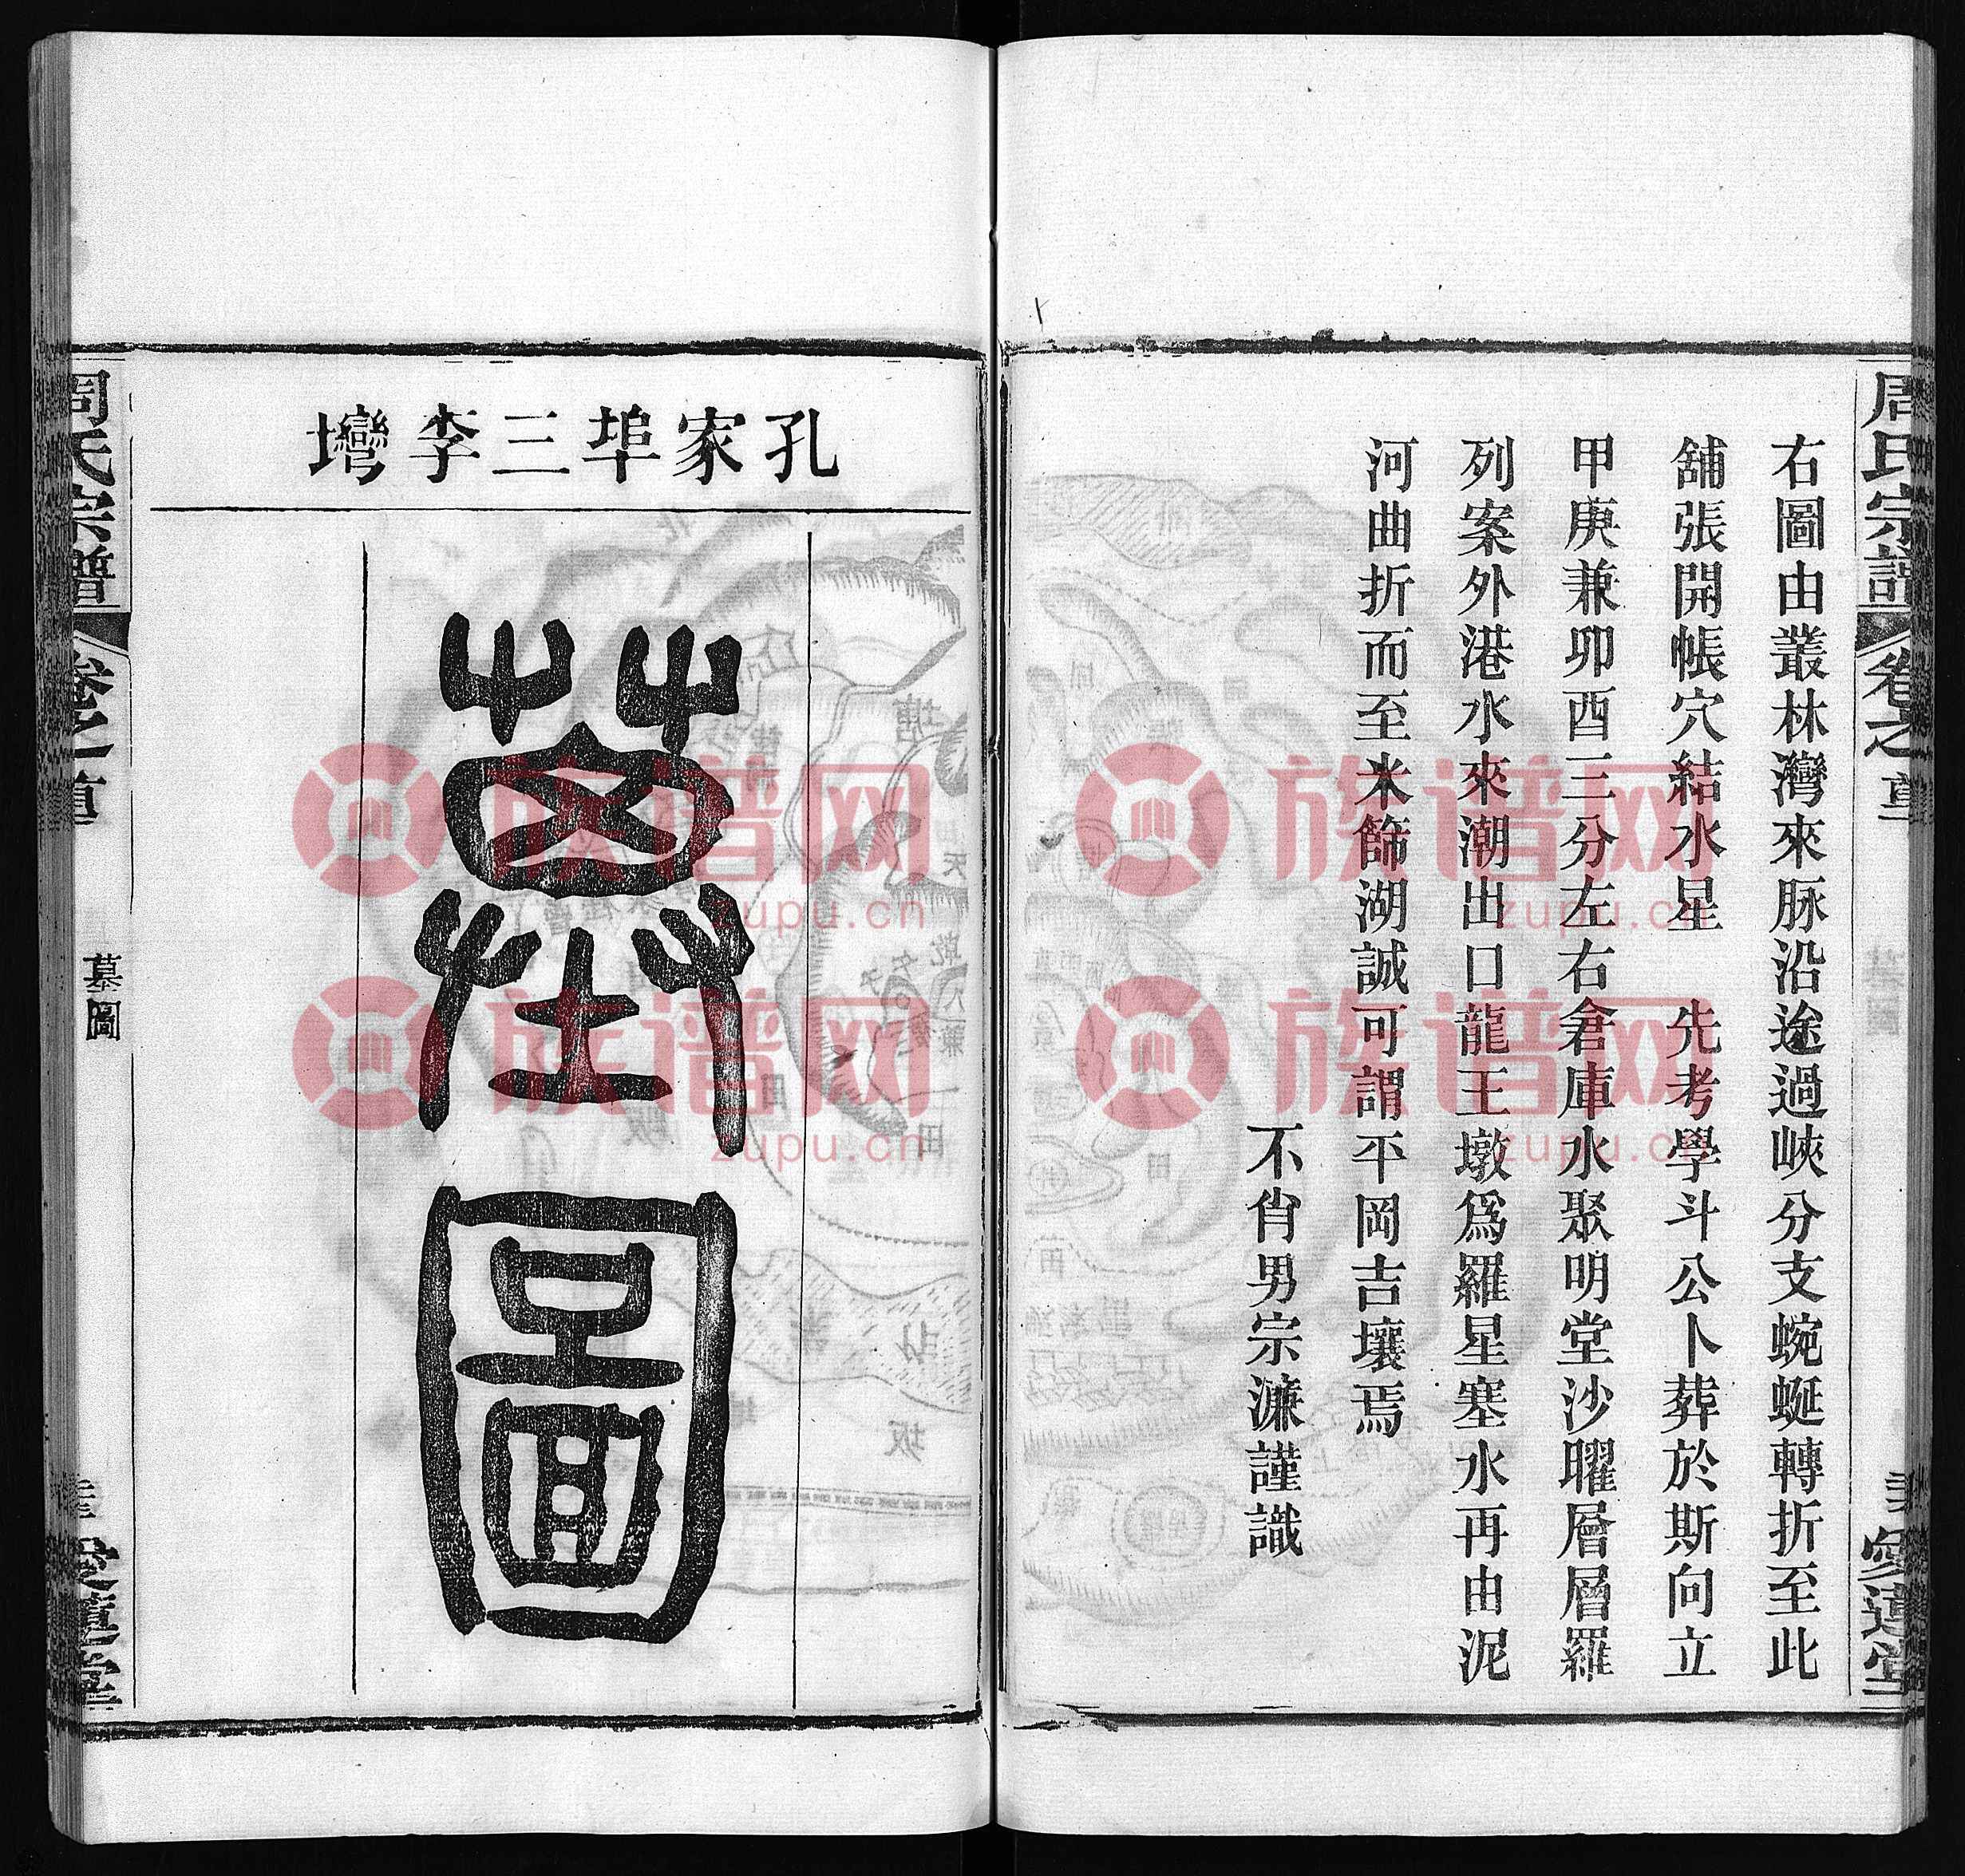 周氏宗譜 卷之首 愛蓮堂
右圖由叢林灣來脉沿途過峽分支蜿蜒轉折至此
舖張開帳穴結水星 先考學斗公卜葬於斯向立
甲庚兼卯酉三分左右倉庫水聚明堂沙曜層層羅
列案外港水來潮出口龍王墩為羅星塞水再由泥
河曲折而至米篩湖誠可謂平岡吉壤焉
不肖男宗濂謹識
孔家埠三李壪
墓圖
周氏宗譜 卷之首 墓圖 愛蓮堂
族谱网
zupu.cn
族谱网
zupu.cn
族谱网
zupu.cn
族谱网
zupu.cn